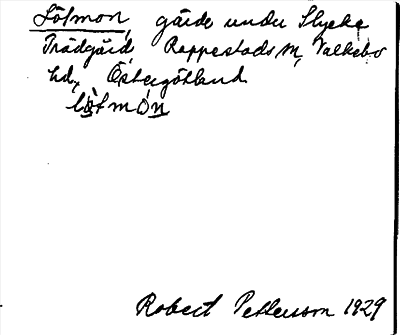 Lötmon, gärde under Stycke
Trädgård Rappestads sn, Valkebo
hd, Östergötland
lötmón
Robert Pettersson 1929